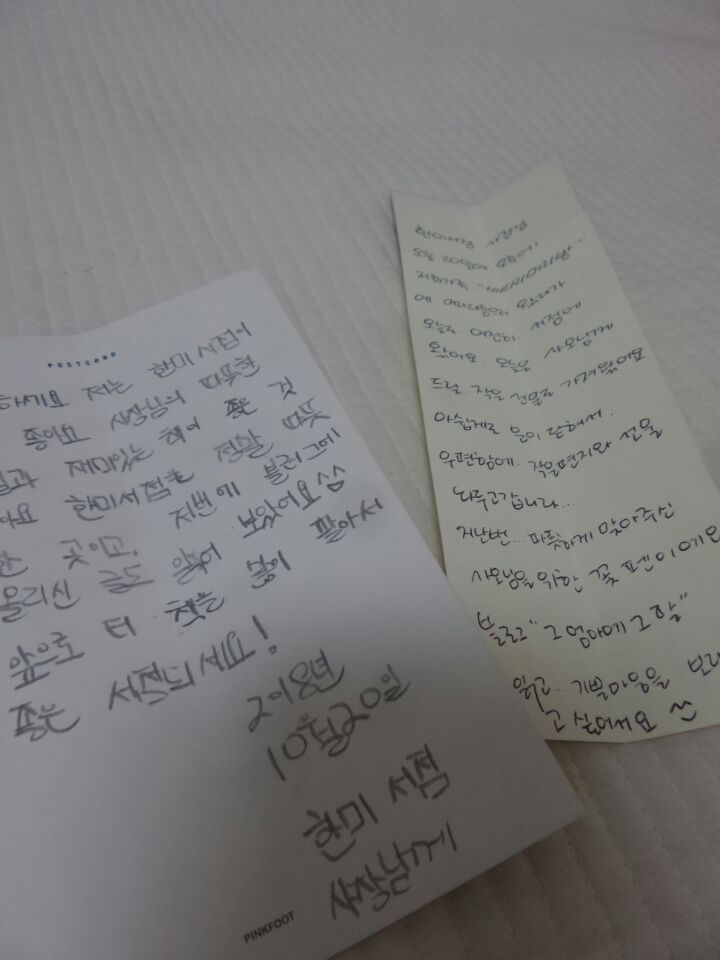 POSTCARD
하세요 저는 한미서점이
좋아요 사장님의 따뜻한
과 재미있는 책이 좋은 것
아요 한미서점은 정말 따뜻
한 곳이고, 저번에 블러그에
올리신 글도 읽어 보았어요 ^^
앞으로 더 책을 많이 팔아서
좋은 서점되세요!
2018년
10월20일
한미 서점
사장님께
PINKFOOT
한미서점 사장님
오늘 20일에,
에
오늘도 어린이 서점에
왔어요. 오늘은 사모님께
드릴 작은 선물도 가져왔어요
아쉽게도 문이 닫혀서.
우편함에. 작은편지와 선물
놔두고갑니다...
지난번... 따뜻하게 맞아주신
사모님을위한 꽃 펜이에요
블로그 "그 엄마에 그 딸"
읽고... 기쁠마음을
고 싶어서요 ^^